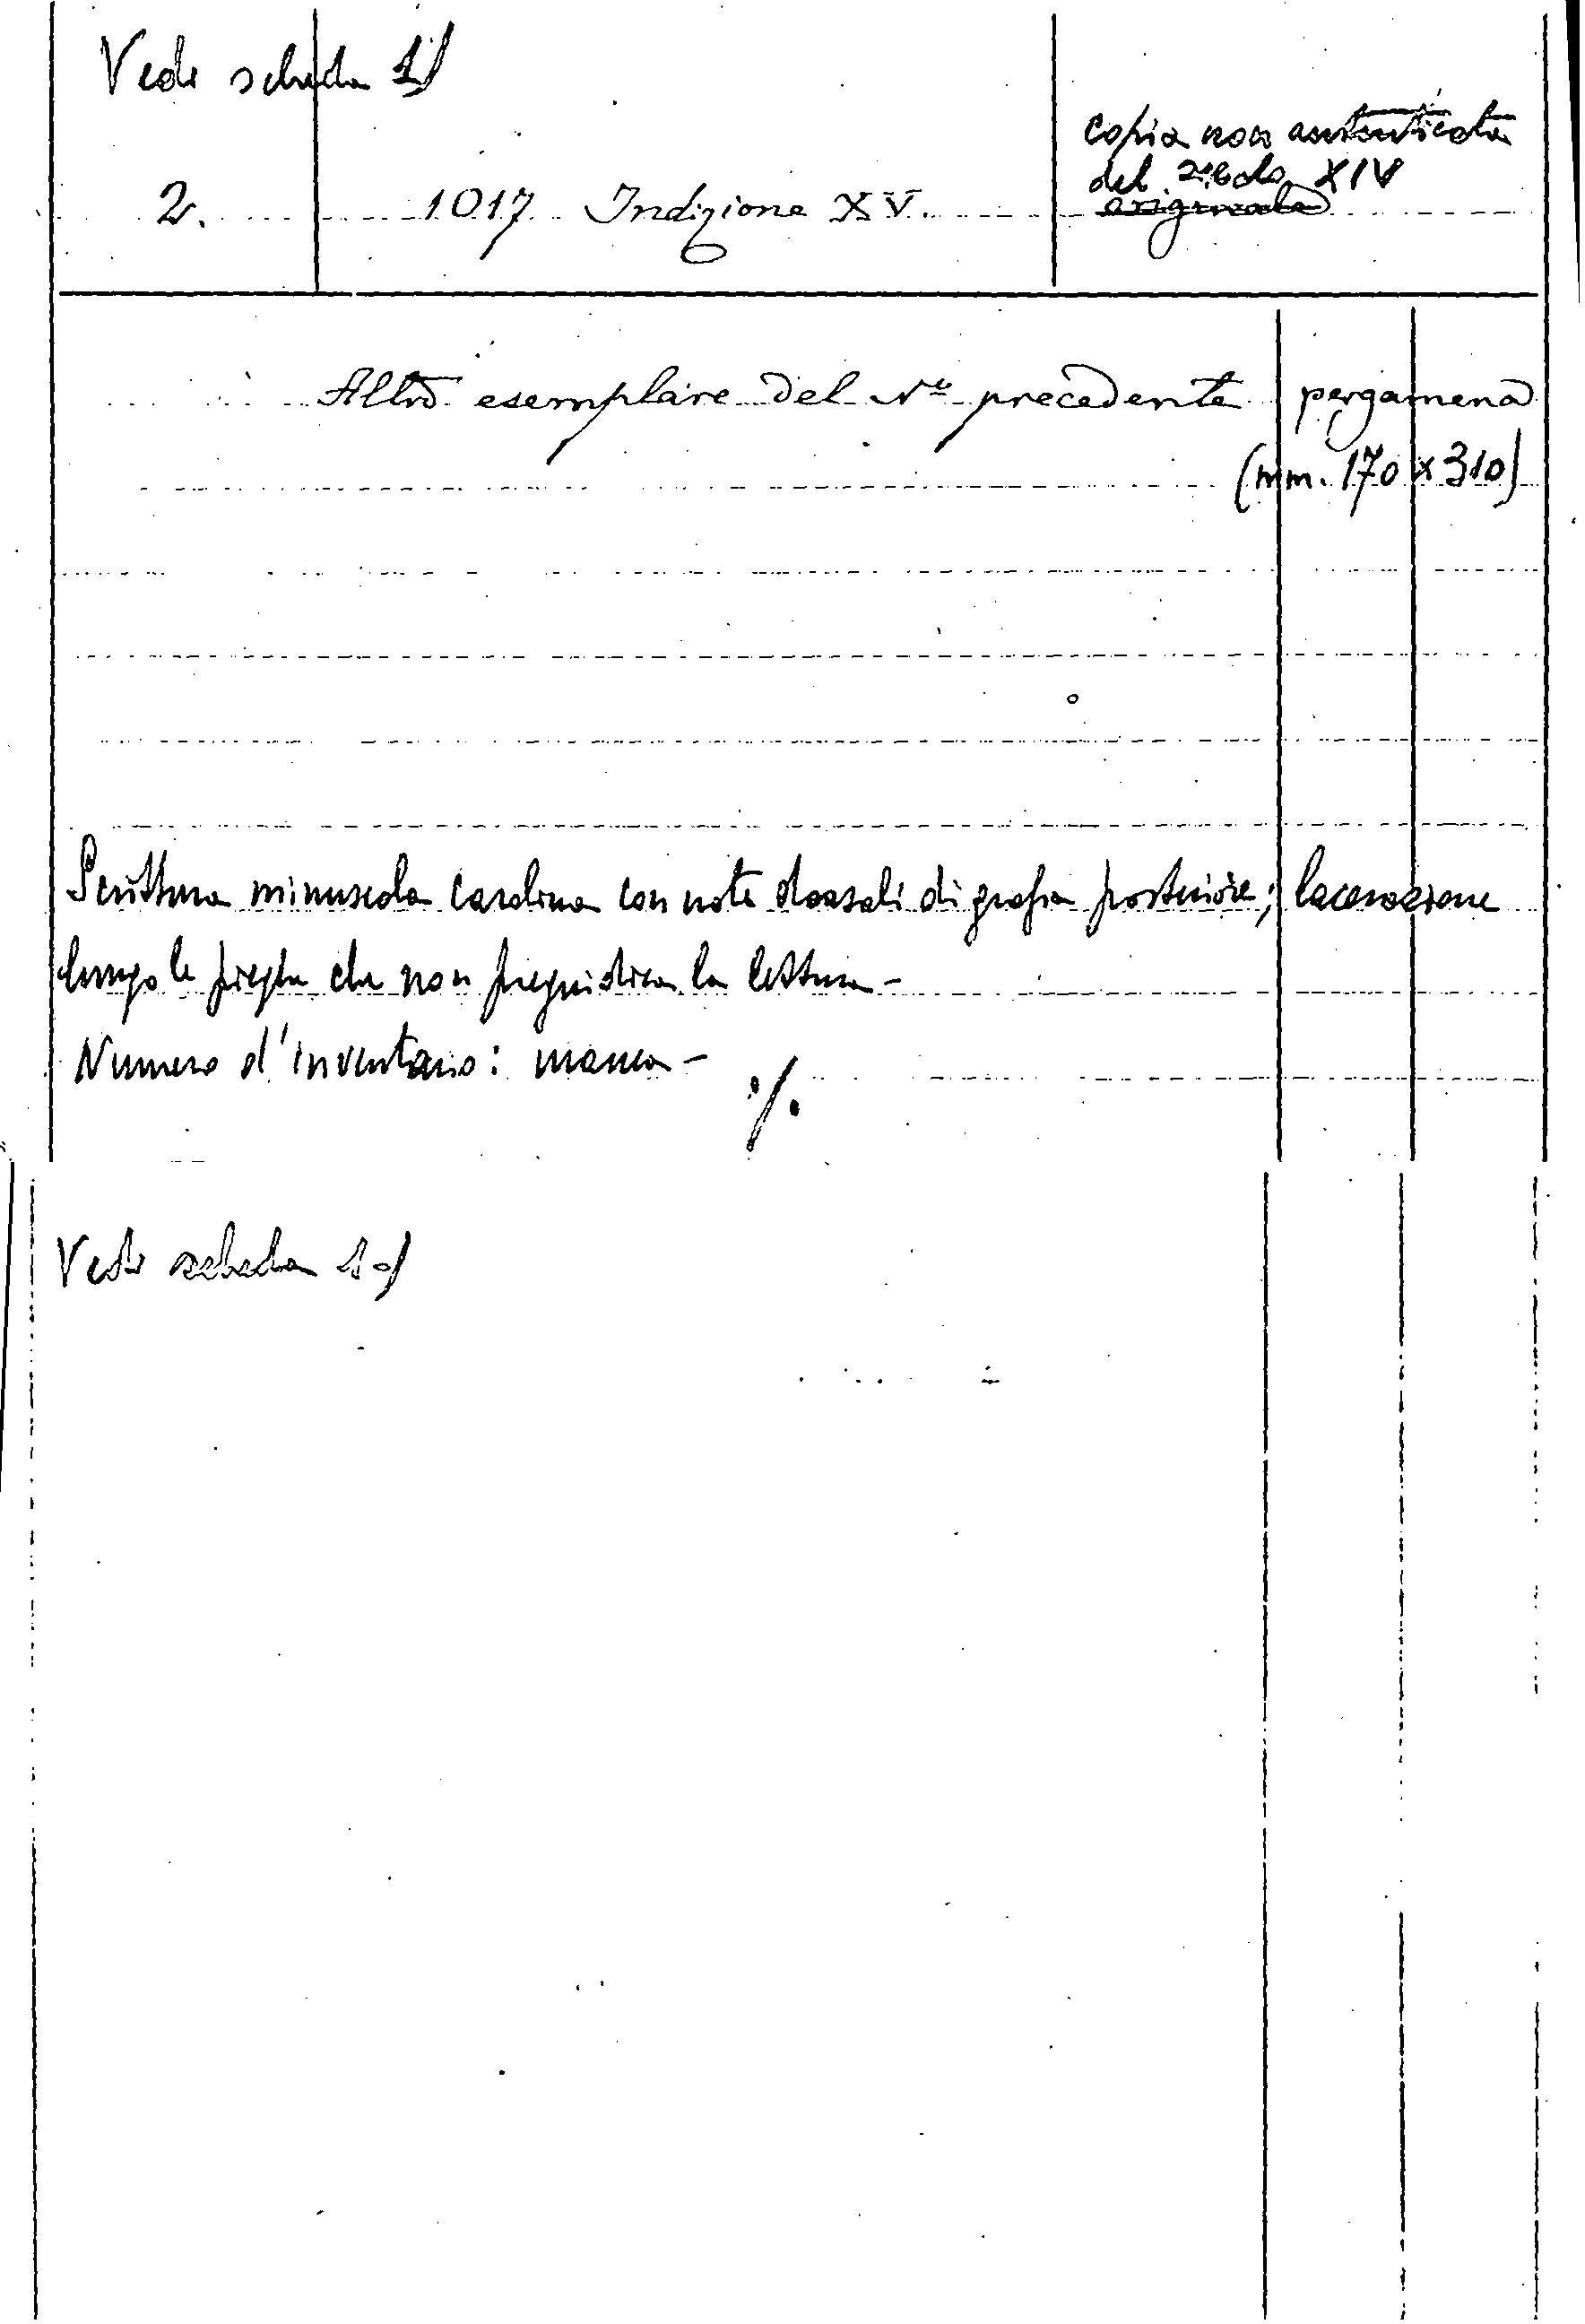 Vedi scheda 1)
copia non autenticata
del secolo XIV
2. 1017 Indizione XV. originale
Altro esemplare del N° precedente pergamena
(mm. 170 x 310)
Scrittura minuscola carolina con note dorsali di grafia posteriore; lacerazione
lungo le pieghe che non pregiudica la lettura -
Numero d'inventario: manca -
./.
Vedi scheda 1-)